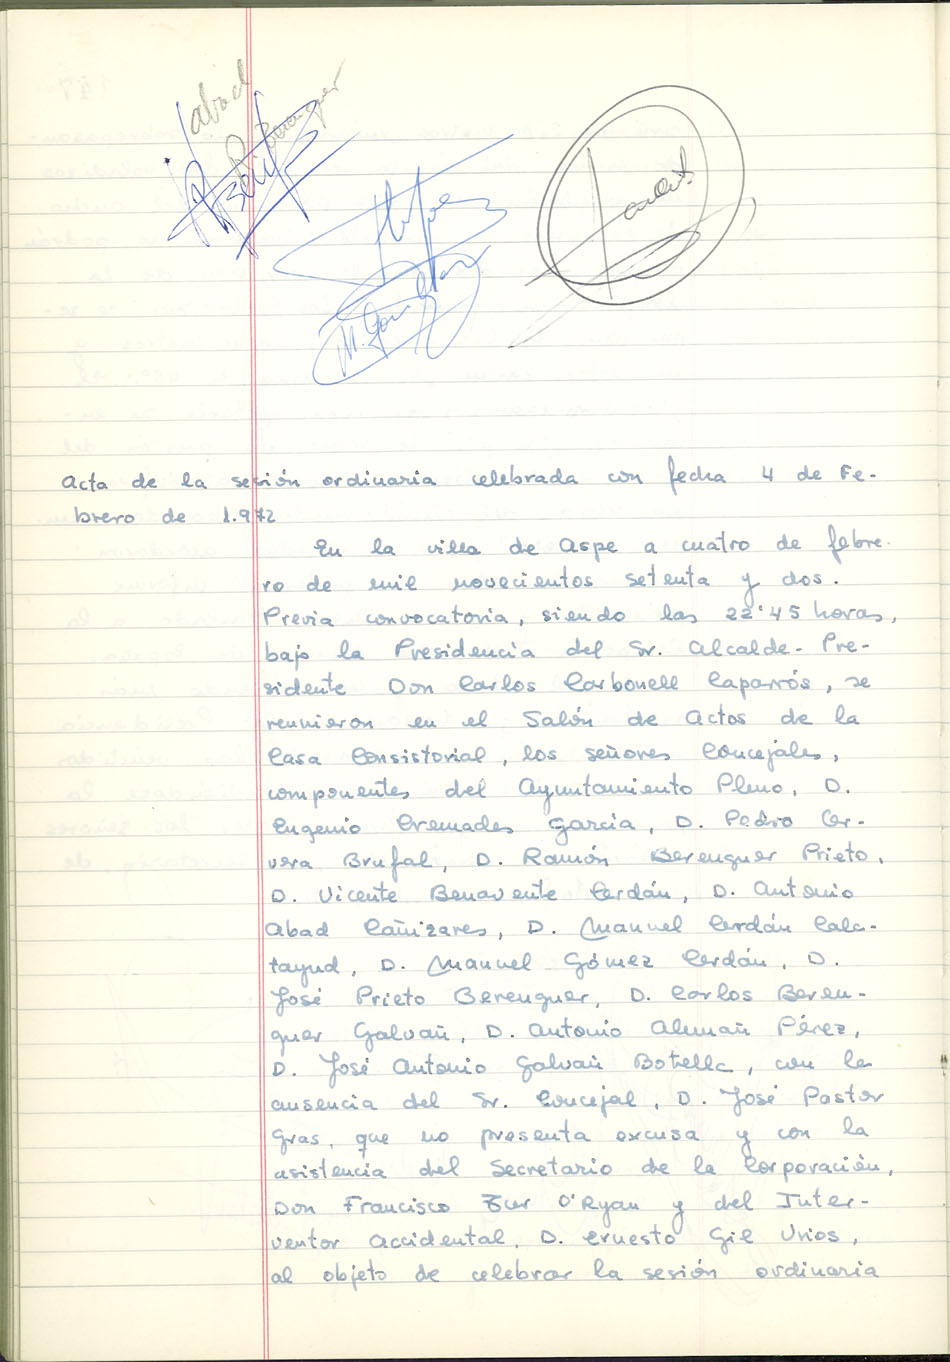 abad
R. Berenguer
M. Gomez
Acta de la sesión ordinaria celebrada con fecha 4 de Fe-
brero de 1.972
En la villa de Aspe a cuatro de febre-
ro de mil novecientos setenta y dos.
Previa convocatoria, siendo las 22'45 horas,
bajo la Presidencia del Sr. Alcalde-Pre-
sidente Don Carlos Carbonell Caparrós, se
reunieron en el Salón de Actos de la
Casa Consistorial, los señores Concejales,
componentes del Ayuntamiento Pleno, D.
Eugenio Cremades García, D. Pedro Cer-
vera Brufal, D. Ramón Berenguer Prieto,
D. Vicente Benavente Cerdán, D. Antonio
Abad Cañizares, D. Manuel Cerdán Cala-
tayud, D. Manuel Gómez Cerdán, D.
José Prieto Berenguer, D. Carlos Beren-
guer Galvañ, D. Antonio Alemañ Pérez,
D. José Antonio Galvañ Botella, con la
ausencia del Sr. Concejal, D. José Pastor
Gras, que no presenta excusa y con la
asistencia del Secretario de la Corporación,
Don Francisco O'Ryan y del Inter-
ventor Accidental, D. Ernesto Gil Urios,
al objeto de celebrar la sesión ordinaria